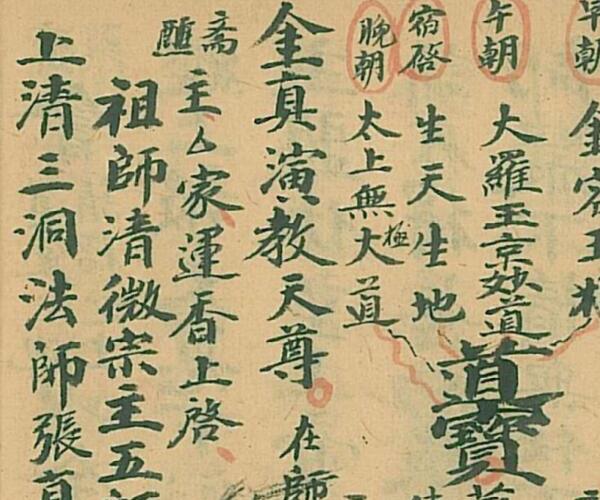 早朝
午朝 大羅玉京妙道
宿啓 生天生地
道寶
晚朝 太上無極大道
金真演教天尊 在師
齋醮主厶家運香上啓
祖師清微宗主五
上清三洞法師張真